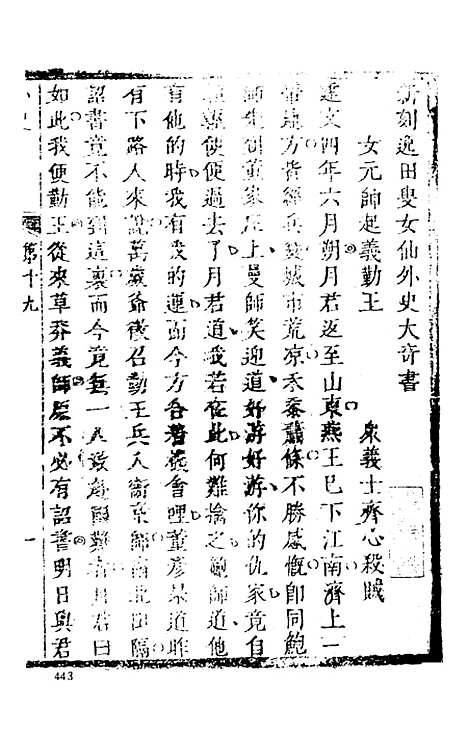 新刻逸田叟女仙外史大奇書
女元帥起義勤王 衆義士齊心殺賊
建文四年六月朔月君返至山東燕王已下江南濟上一
帶地方皆經兵燹城市荒凉禾黍蕭條不勝感慨卽同鮑
師先到董家莊上曼師笑迎道好游好游你的仇家竟自
從這便過去了月君道我若在此何難擒之鮑師道他
有他的時我有我的運而今方合著義會哩董彥杲道昨
有下路人來說萬歲爺徵召勤王兵入衞京師南北阻隔
詔書竟不能到這裏而今竟無一人敢赴國難者月君曰
如此我便勤王從來草莽義師原不必有詔書明日與君
第十九
一
443